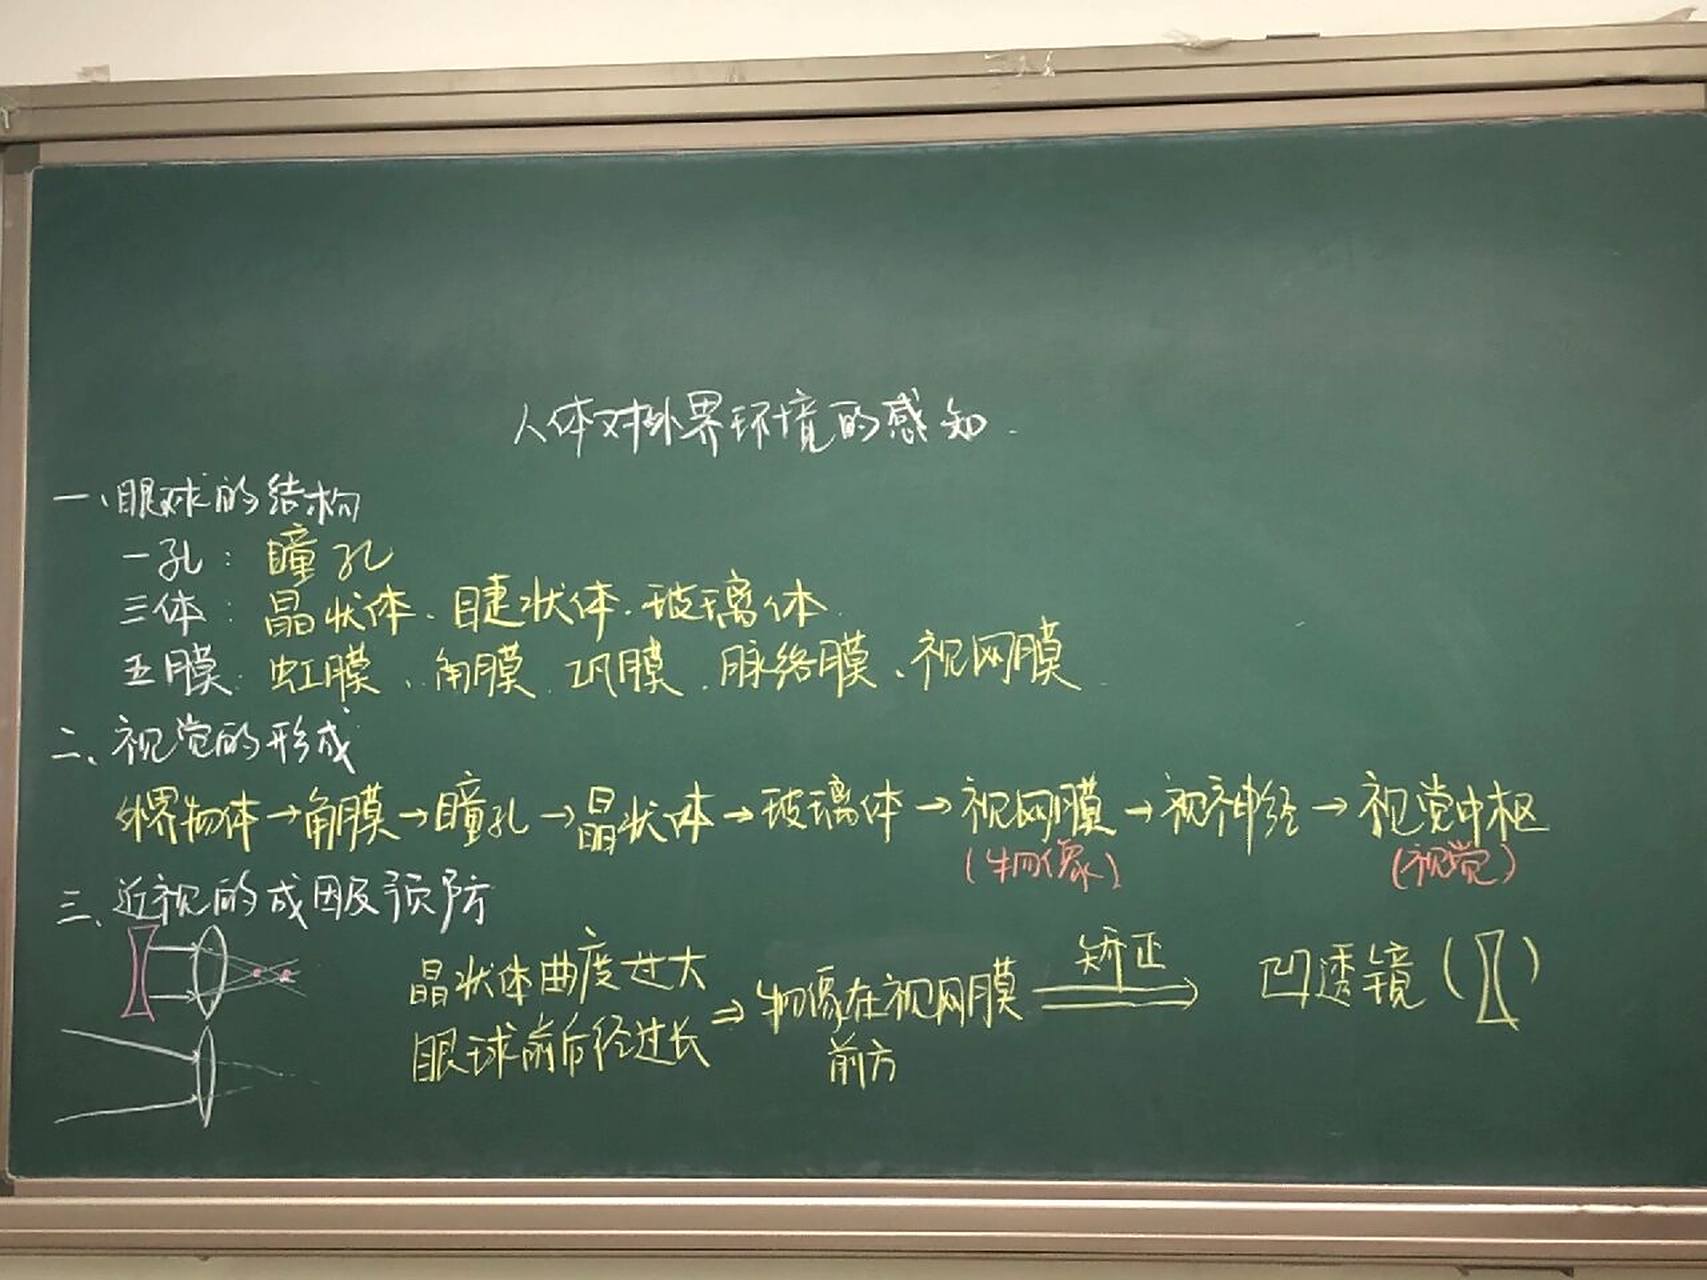 人体对外界环境的感知.
一、眼球的结构
一孔：瞳孔
三体：晶状体、睫状体、玻璃体.
五膜：虹膜、角膜、巩膜、脉络膜、视网膜
二、视觉的形成
外界物体→角膜→瞳孔→晶状体→玻璃体→视网膜→视神经→视觉中枢
(物像) (视觉)
三、近视的成因及预防
晶状体曲度过大
眼球前后径过长
⇒ 物像在视网膜
前方
矫正
凹透镜( )